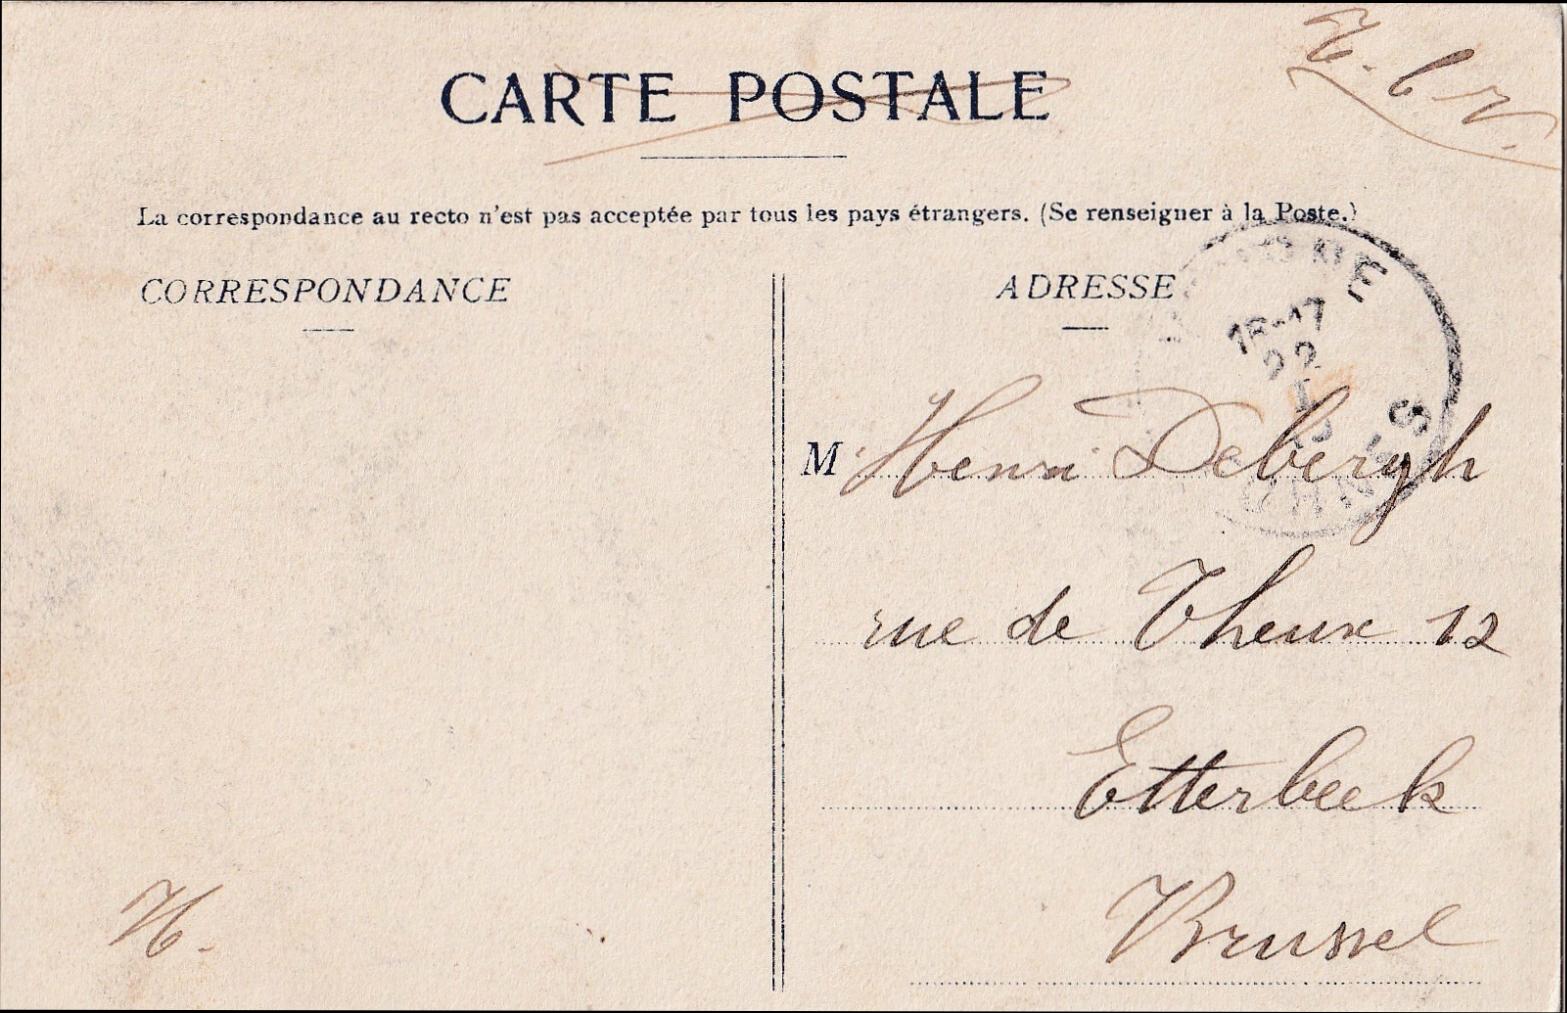 CARTE POSTALE
La correspondance au recto n'est pas acceptée par tous les pays étrangers. (Se renseigner à la Poste.)
CORRESPONDANCE
ADRESSE
22
I
M Henri Debergh
rue de Theux 12
Etterbeek
Brussel
H.